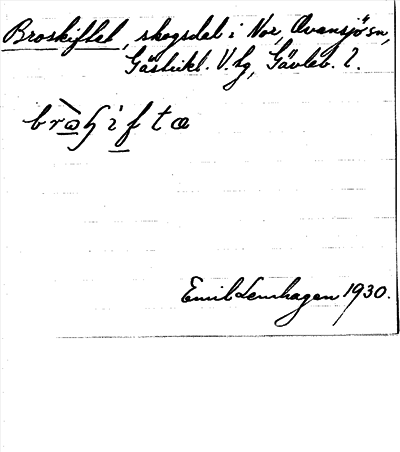 Broskiftet, skogsdel i Nor, Ovansjö sn,
Gästrikl. V. tg, Gävleb. l.
bròʃ̣ifta
Emil Lenhagen 1930.